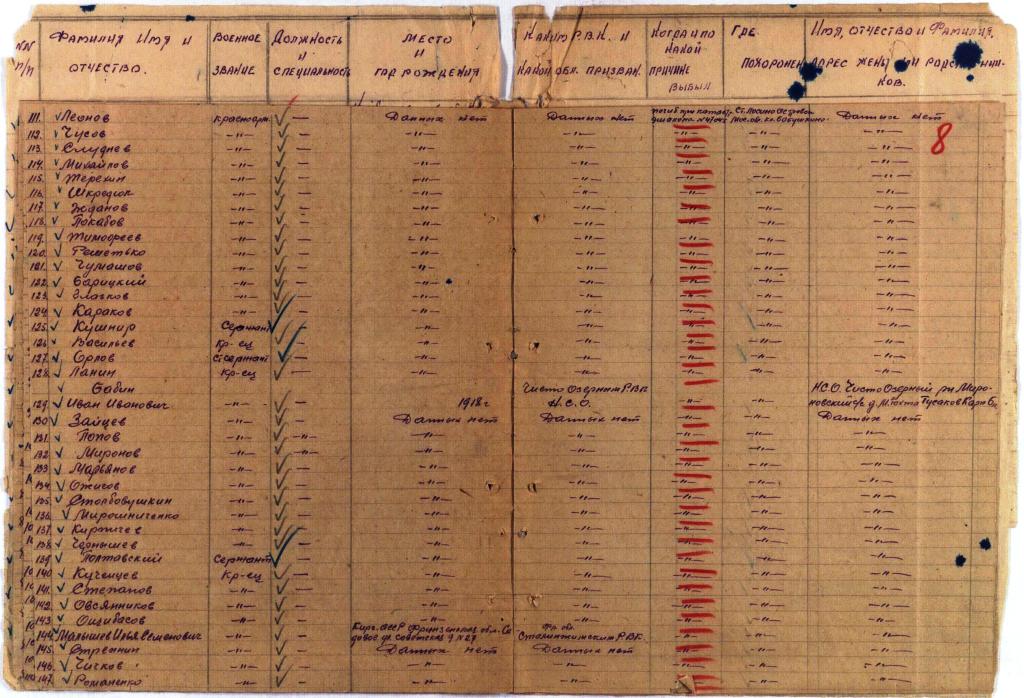 NN п/п ФАМИЛИЯ ИМЯ И ОТЧЕСТВО. ВОЕННОЕ ЗВАНИЕ ДОЛЖНОСТЬ И СПЕЦИАЛЬНОСТЬ МЕСТО И ГОД РОЖДЕНИЯ КАКИМ Р.В.К. И КАКОЙ ОБЛ. ПРИЗВАН. КОГДА И ПО КАКОЙ ПРИЧИНЕ ВЫБЫЛ ГДЕ ПОХОРОНЕН ИМЯ, ОТЧЕСТВО И ФАМИЛИЯ, АДРЕС ЖЕНЫ ИЛИ РОДСТВЕННИКОВ.
8
111. Леонов красноарм. — Данных нет Данных нет погиб при Данных нет
112. Чусов -"- — -"- -"- -"- -"- -"-
113. Слуднев -"- — -"- -"- -"- -"- -"-
114. Михайлов -"- — -"- -"- -"- -"- -"-
115. Жерехин -"- — -"- -"- -"- -"- -"-
116. Шкредюк -"- — -"- -"- -"- -"- -"-
117. Жданов -"- — -"- -"- -"- -"- -"-
118. Покабов -"- — -"- -"- -"- -"- -"-
119. Тимофеев -"- — -"- -"- -"- -"- -"-
120. Решетько -"- — -"- -"- -"- -"- -"-
121. Чумашов -"- — -"- -"- -"- -"- -"-
122. Барицкий -"- — -"- -"- -"- -"- -"-
123. Глазков -"- — -"- -"- -"- -"- -"-
124. Караков -"- — -"- -"- -"- -"- -"-
125. Кушнир Сержант — -"- -"- -"- -"- -"-
126. Васильев Кр-ец — -"- -"- -"- -"- -"-
127. Орлов ст.сержант — -"- -"- -"- -"- -"-
128. Ланин Кр-ец — -"- -"- -"- -"- -"-
Бабин Чисто Озерним Р.В.К. Н.С.О. Чисто Озерный рн Миро-
129. Иван Иванович -"- — 1918г Н.С.О. -"- -"- новский
130. Зайцев -"- — Данных нет Данных нет -"- -"- Данных нет
131. Попов -"- -"- -"- -"- -"- -"- -"-
132. Миронов -"- -"- -"- -"- -"- -"- -"-
133. Марьянов -"- — -"- -"- -"- -"- -"-
134. Ожигов -"- — -"- -"- -"- -"- -"-
135. Столбовушкин -"- — -"- -"- -"- -"- -"-
136. Мирошниченко -"- — -"- -"- -"- -"- -"-
137. Кирпичев -"- — -"- -"- -"- -"- -"-
138. Чернышев -"- — -"- -"- -"- -"- -"-
139. Полтавский Сержант — -"- -"- -"- -"- -"-
140. Кученцев Кр-ец — -"- -"- -"- -"- -"-
141. Степанов -"- — -"- -"- -"- -"- -"-
142. Овсянников -"- — -"- -"- -"- -"- -"-
143. -"- — -"- -"- -"- -"- -"-
144. Малышев Илья Семенович -"- — Кирг. ССР Фрунзенская обл. Садовое ул. Советская д №27 Фр. об. Сталинжинским РВК. -"- -"- -"-
145. Стренин -"- — Данных нет Данных нет -"- -"- -"-
146. Чичков -"- — -"- -"- -"- -"- -"-
147. Романенко -"- — -"- -"- -"- -"- -"-